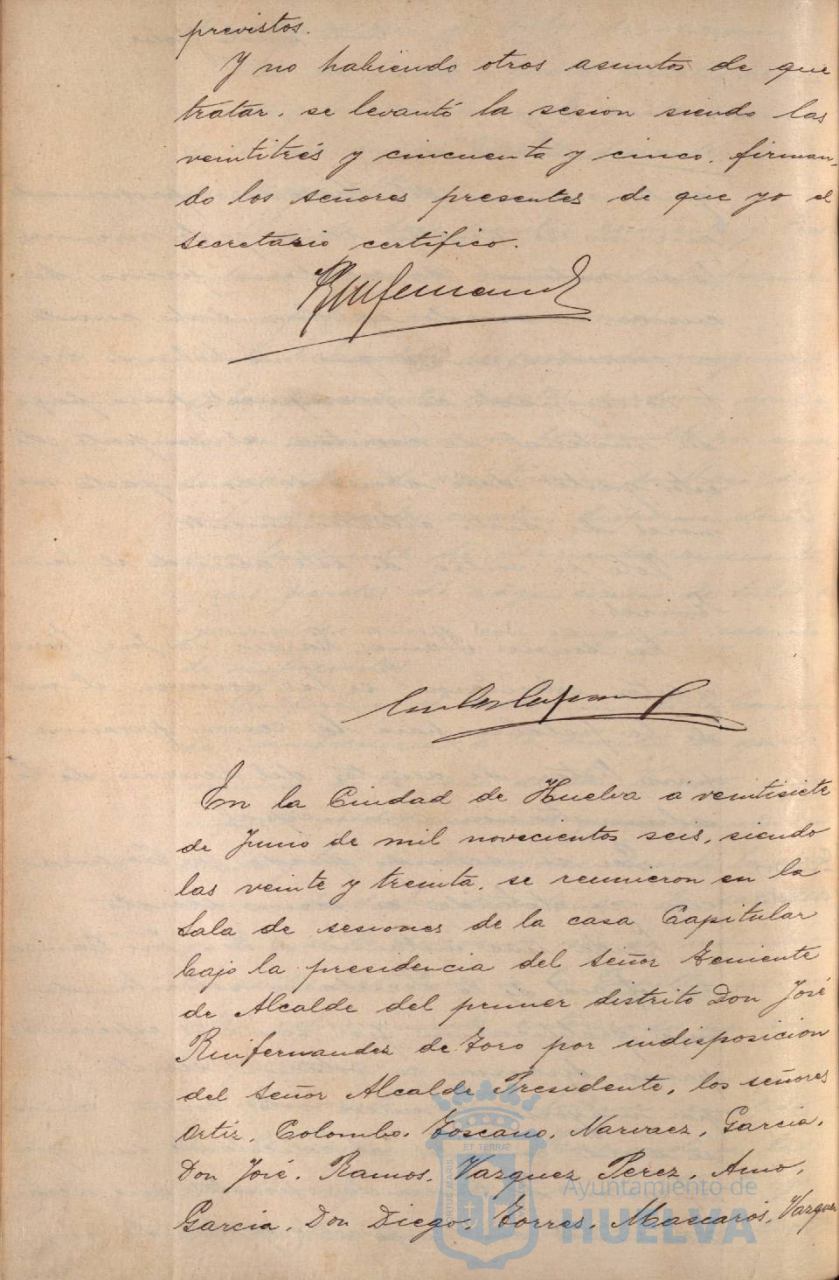 previstos.
Y no habiendo otros asuntos de que
tratar, se levantó la sesion siendo las
veintitrés y cincuenta y cinco, firman-
do los señores presentes de que yo el
secretario certifico.
En la Ciudad de Huelva á veintisiete
de Junio de mil novecientos seis, siendo
las veinte y treinta, se reunieron en la
Sala de sesiones de la casa Capitular
bajo la presidencia del Señor Teniente
de Alcalde del primer distrito Don José
Ruifernandez de Toro por indisposicion
del Señor Alcalde Presidente, los señores
Ortiz, Colombo, Toscano, Narvaez, Garcia,
Don José, Ramos, Vazquez Perez, Amo,
Garcia, Don Diego, Torres, Mascarós, Vazquez
Ayuntamiento de
HUELVA